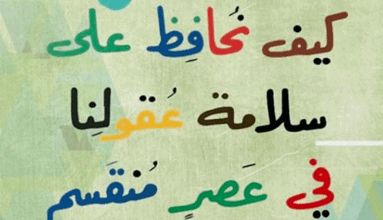 كيف نُحافِظ على
سلامة عُقولِنا
في عَصرٍ مُنقَسم